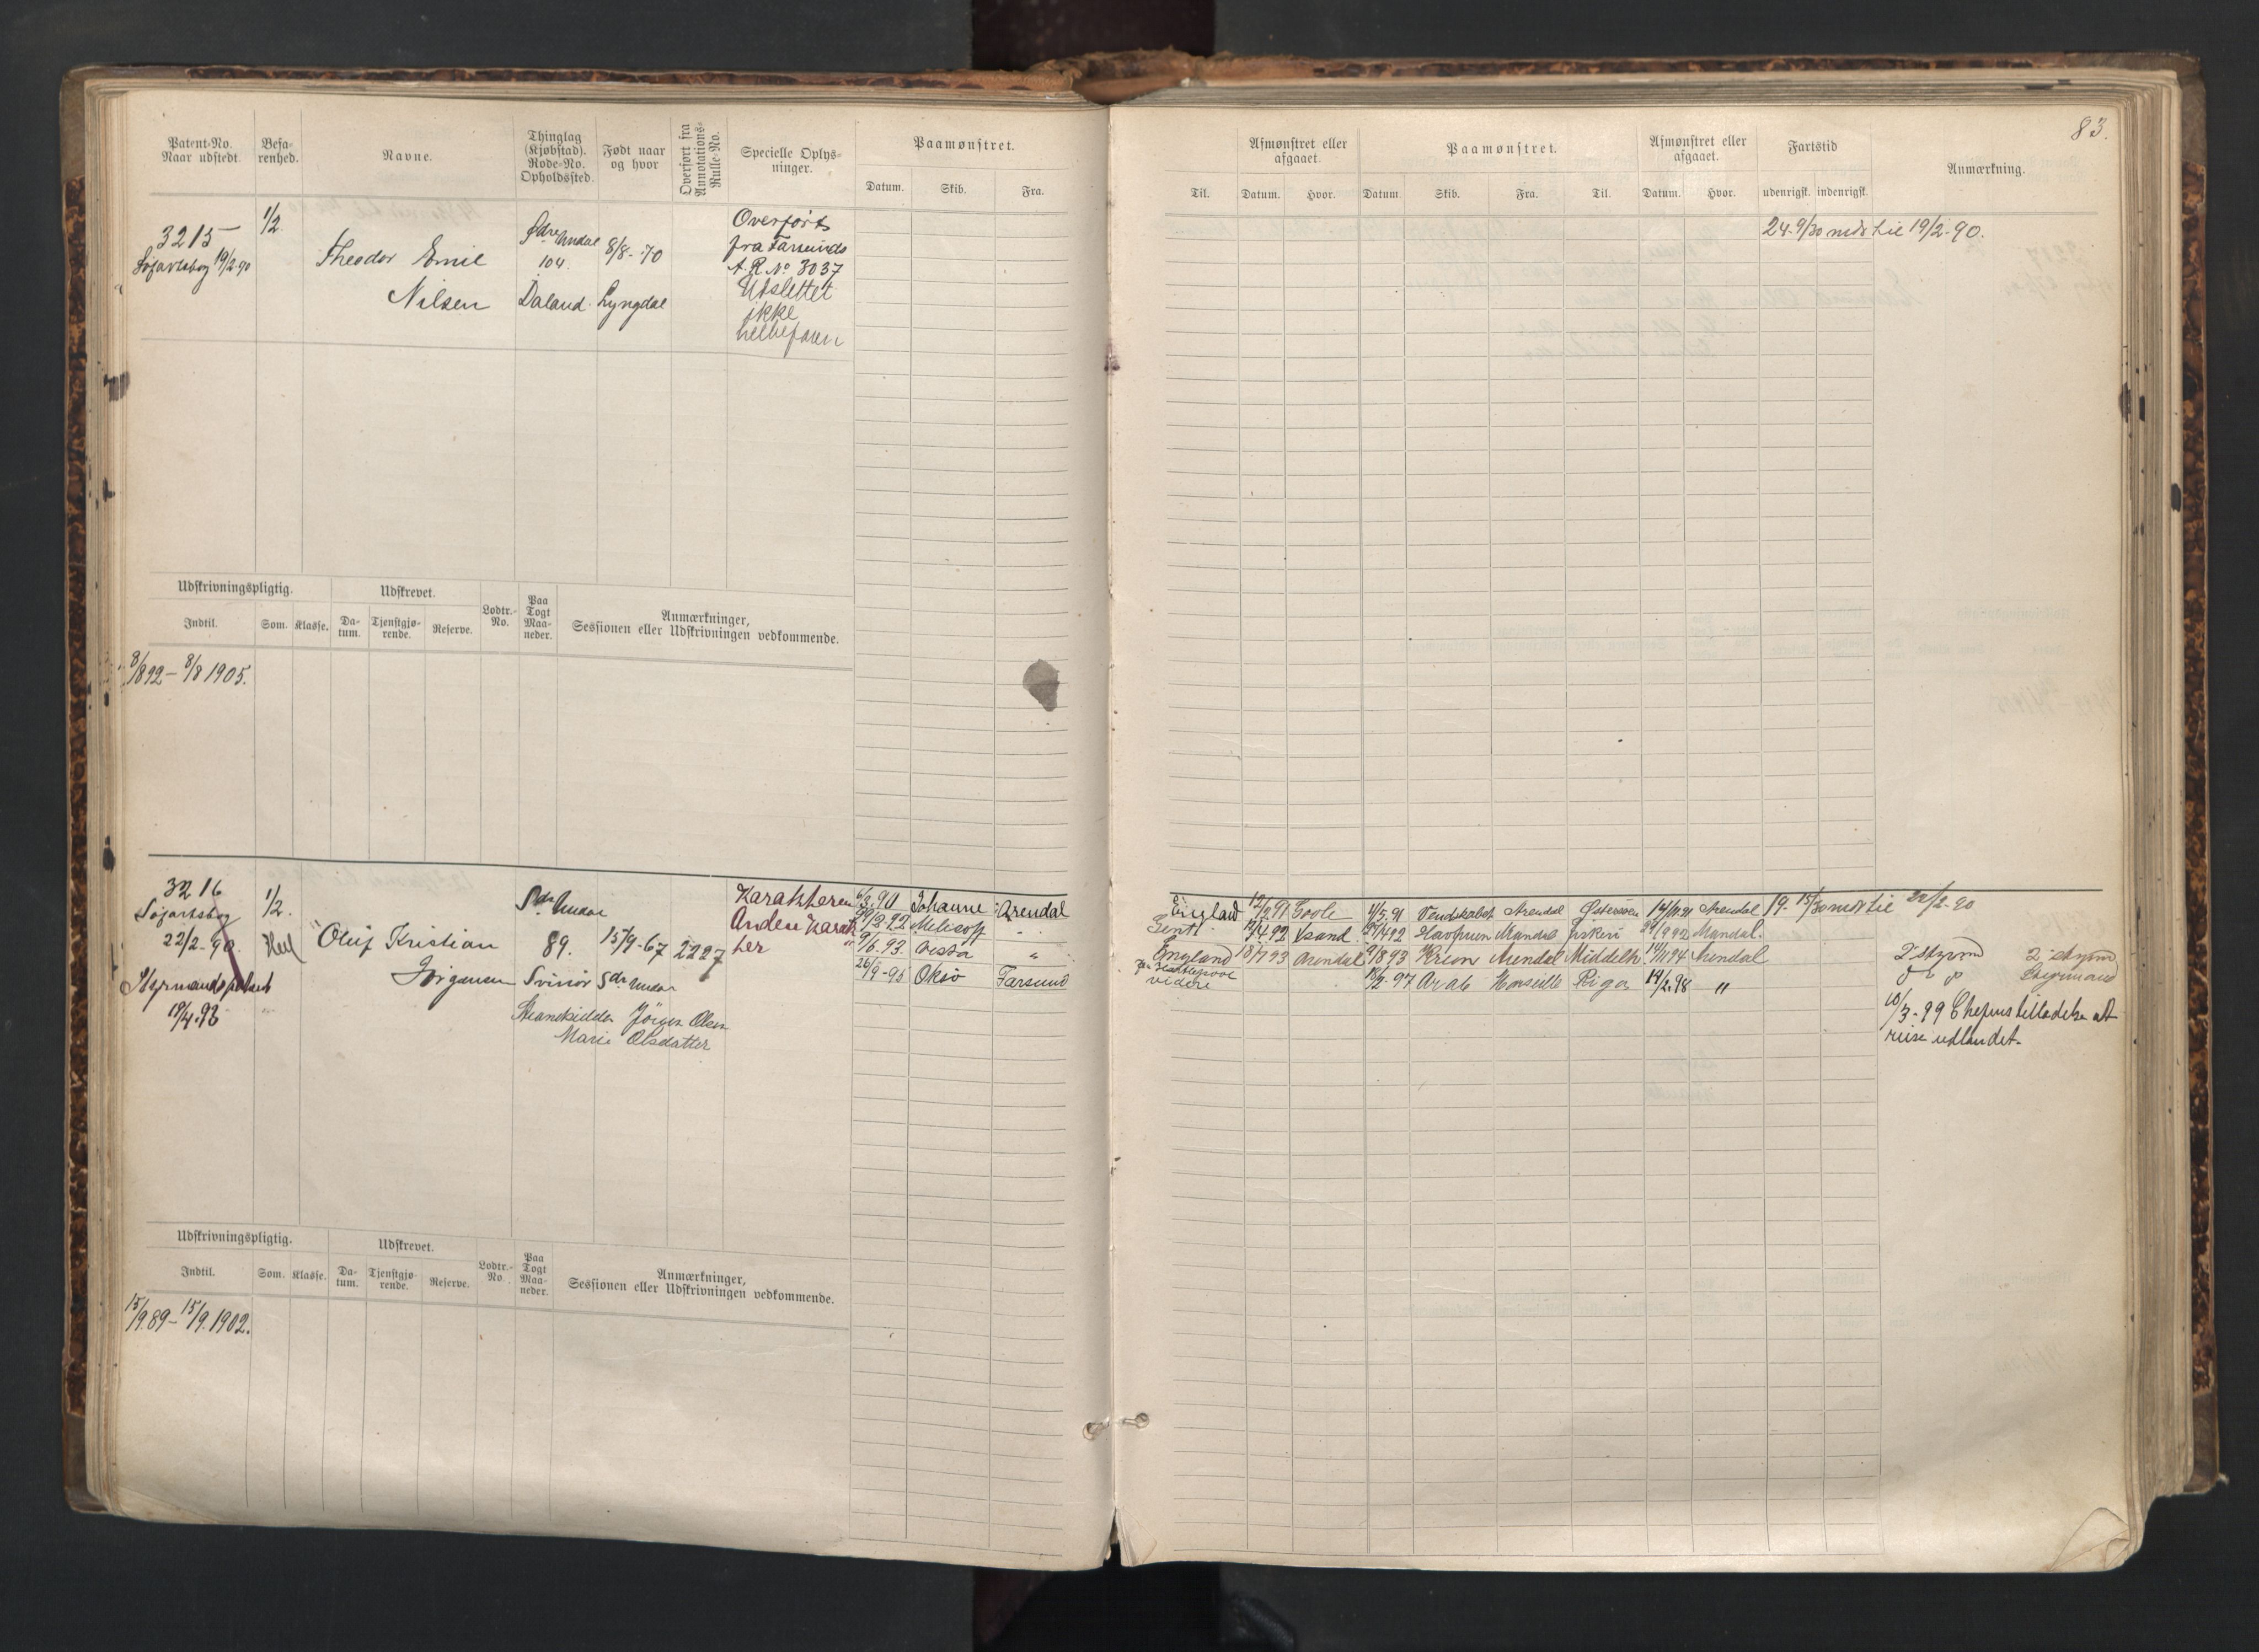 83.
Patent-No.
Naar udstedt.
Befa-
renhed.
Navne.
Thinglag
(Kjøbstad).
Rode-No.
Opholdssted.
Født naar
og hvor
Overført fra
Annotations-
Rulle-No.
Specielle Oplys-
ninger.
Paamønstret.
Datum.
Skib.
Fra.
Til.
Afmønstret eller
afgaaet.
Datum.
Hvor.
Paamønstret.
Datum.
Skib.
Fra.
Til.
Afmønstret eller
afgaaet.
Datum.
Hvor.
Fartstid
udenrigsk. indenrigsk.
Anmærkning.
3215
Søfartsbog 19/2-90
1/2
Theodor Emil
Nilsen
Sdre Undal
104.
Daland
8/8-70
Lyngdal
Overført
fra Farsunds
A.R. No 3037
Udslettet
ikke
helbefaren
24-9/30 mdr til 19/2-90.
Udskrivningspligtig.
Indtil.
Som.
Klasse.
Udskrevet.
Da-
tum.
Tjenstgjø-
rende.
Reserve.
Lodtr.-
No.
Paa
Togt
Maa-
neder.
Anmærkninger,
Sessionen eller Udskrivningen vedkommende.
8/8 92 - 8/8 1905.
3216
Søfartsbog
22/2-90.
Styrmandspatent
1/2.
Hel
Oluf Kristian
Jørgensen
Sdr Undal
89.
Svinør
15/9-67
Sdr Undal
2227
Jörgen Olsen
Marie Olsdatter
Karakteren
Anden Karak
ter
90 Johanne Arendal
92
93. "
26/9-95 Oksö Farsund
England 91 Goole 1/5.91 Venskabet Arendal Østersøen 91 Arendal 19-15/30 mdr til 22/2-90
92 92 Mandal fiskeri 92 Mandal.
England 93 Arendal 93 Arendal Middelh 94 Arendal
videre 97 Arab Riga 98 "
2 styrmd 2 styrmd
Styrmand
10/3-99 Chefens tilladelse at
reise udlandet.
Udskrivningspligtig.
Indtil.
Som.
Klasse.
Udskrevet.
Da-
tum.
Tjenstgjø-
rende.
Reserve.
Lodtr.-
No.
Paa
Togt
Maa-
neder.
Anmærkninger,
Sessionen eller Udskrivningen vedkommende.
15/9.89 - 15/9.1902.